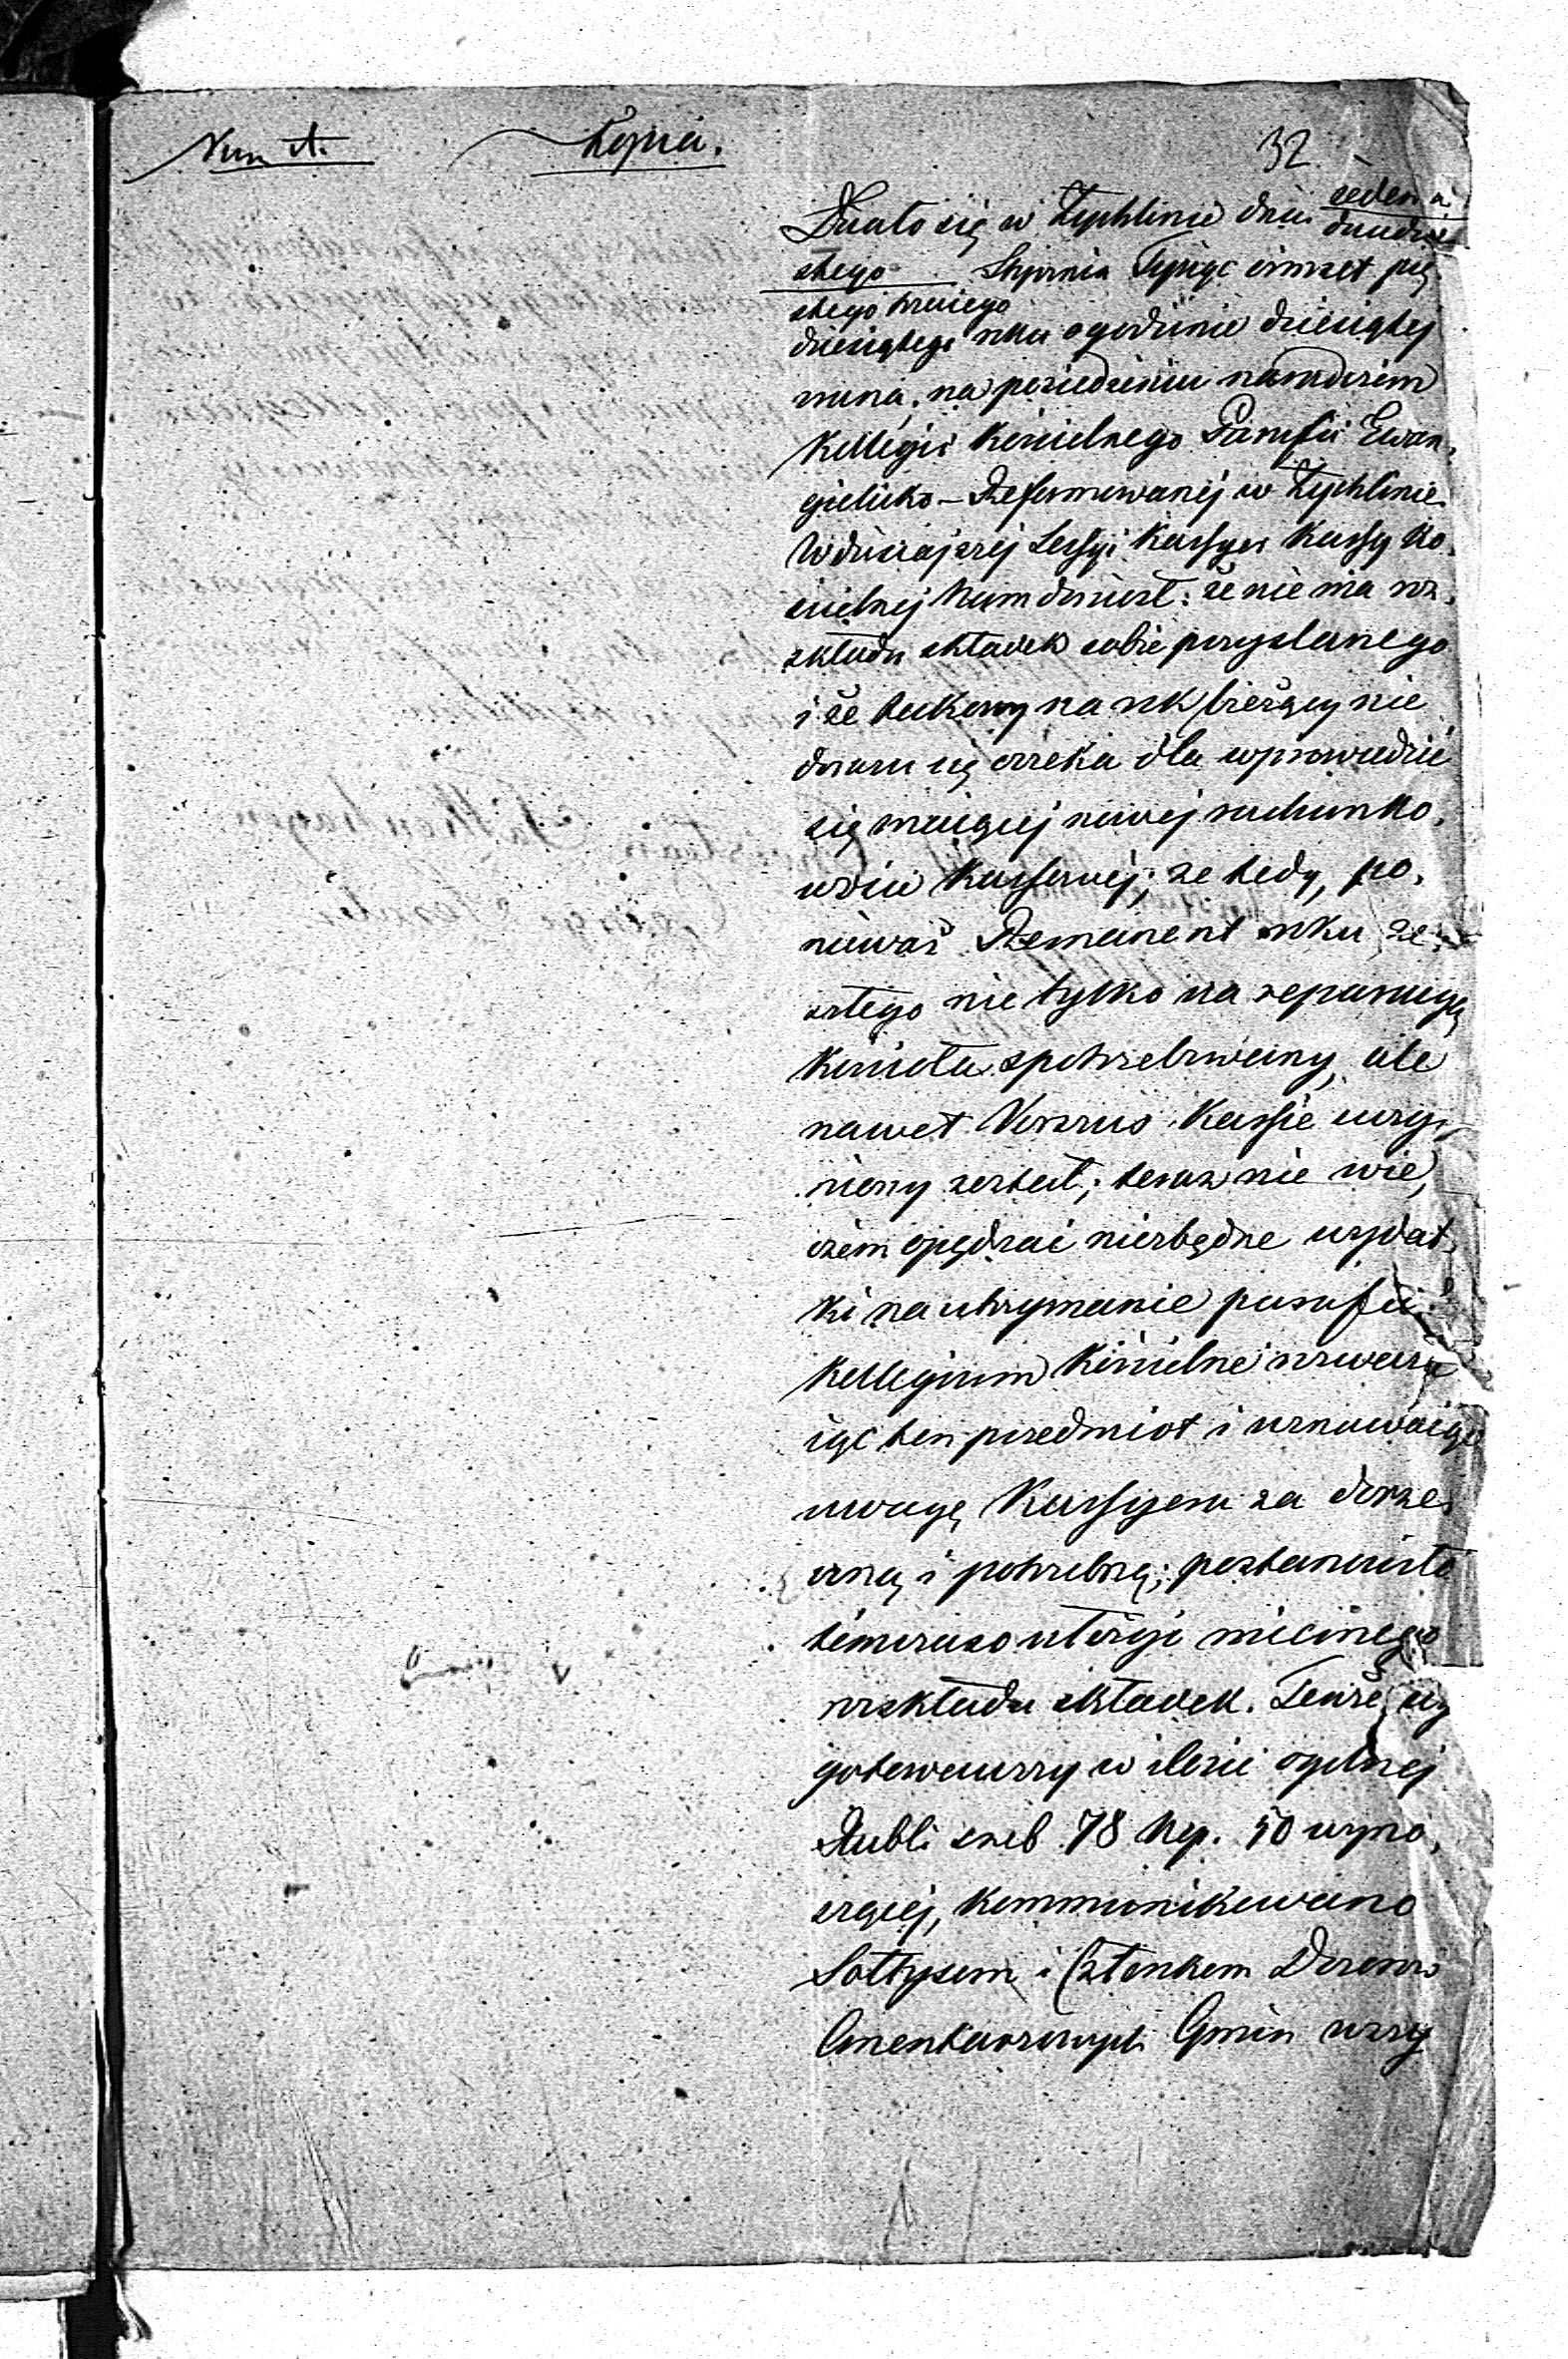 Num A.
Kopia.
32
Działo się w Żychlinie dnia siedem a
dwudzie
stego Stycznia Tysiąc ośmset pię
stego trzeciego
dziesiątego roku o godzinie dziesiątej
zrana, na posiedzeniu nadzorczem
Kollegii Kościelnego Parafii Ewan,
gielicko-Reformowanej w Żychlinie
W dzisiajszej Sessyi Kassyer Kassy Ko,
ścielnej nam doniosł: że nie ma roz,
zkładu składek sobie przysłanego
i że takowy na rok bieżący nie
czeka dla wprowadzić
się maiącej nowej rachunko,
wości Kassowej; że tedy, po,
nieważ Remanent roku ze,
szłego nie tylko na reparacyą
Kościoła spotrzebowany, ale
nawet Vorszus Kassie uczy,
niony został; teraz nie wie,
czém opędzać niezbędne wydat,
ki na utrzymanie parafii.
Kollegium Kościelne zważa
iąc ten przedmiot i uznawaiąc
uwagę Kassyera za dorze,
czną i potrzebną; postanowiło
témczaso ułożyć
rozkładu składek. Tenże wy
gotowawszy w ilości ogólnej
Rubli sreb 78 kop. 50 wyno,
szącej, kommunikowano
Sołtysom i Członkom Dozorów
Cmentarzowych Gmin wzy